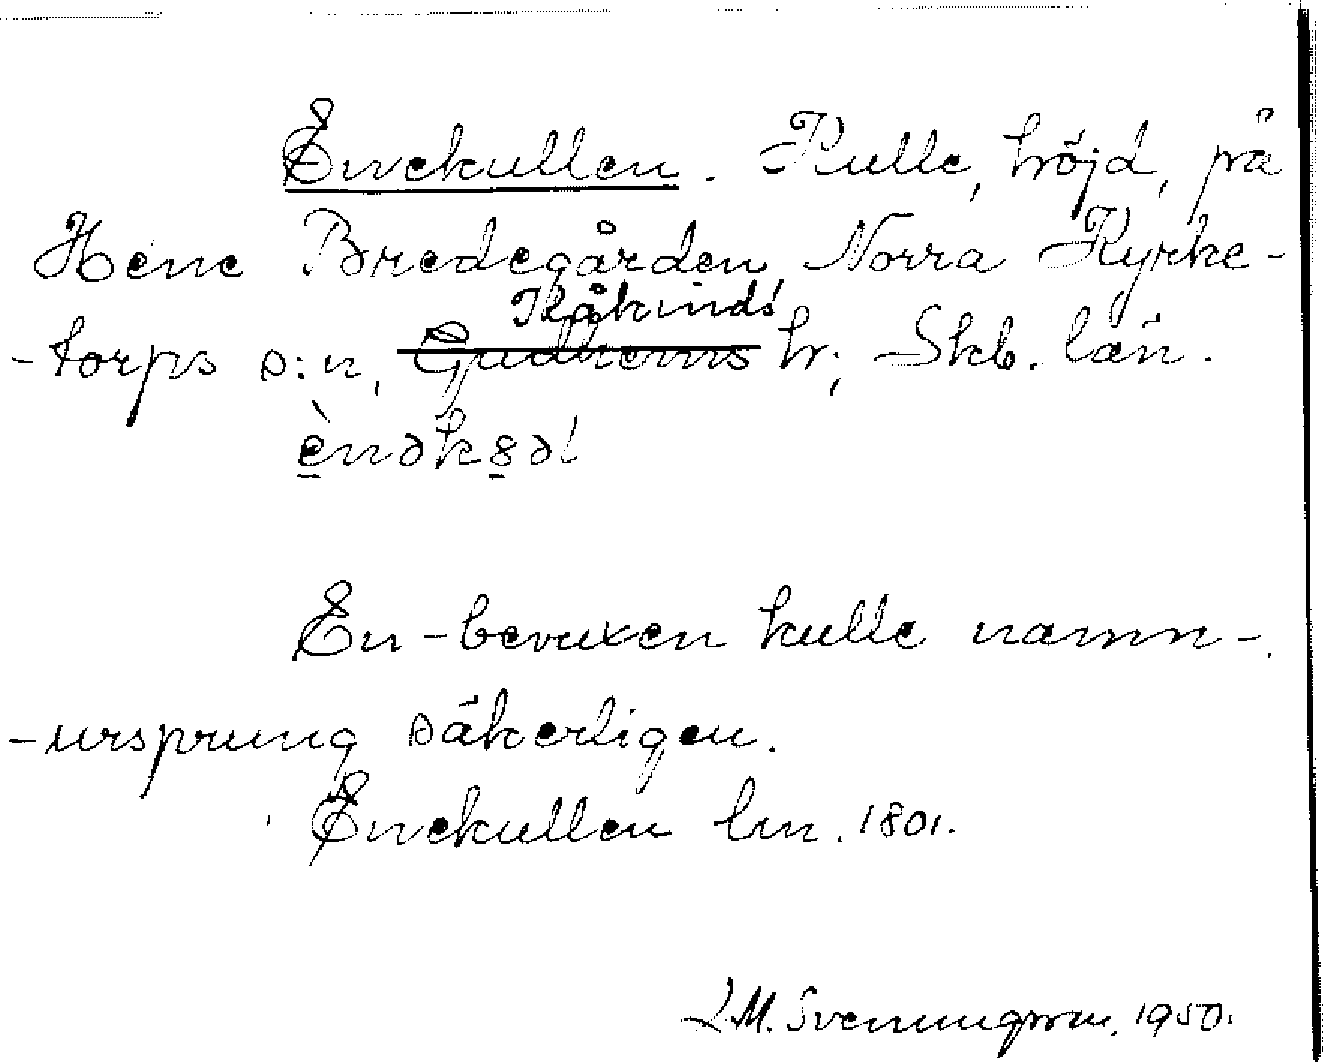 Enekullen. Kulle, höjd, på
Hene Bredegården, Norra Kyrke-
-torps s:n, Gudhems Kåkinds hr; Skb. län.
ènəkɞəl
En-bevuxen kulle namn-
-ursprung säkerligen.
Enekullen lm. 1801.
L.M. Svenungsson, 1950.